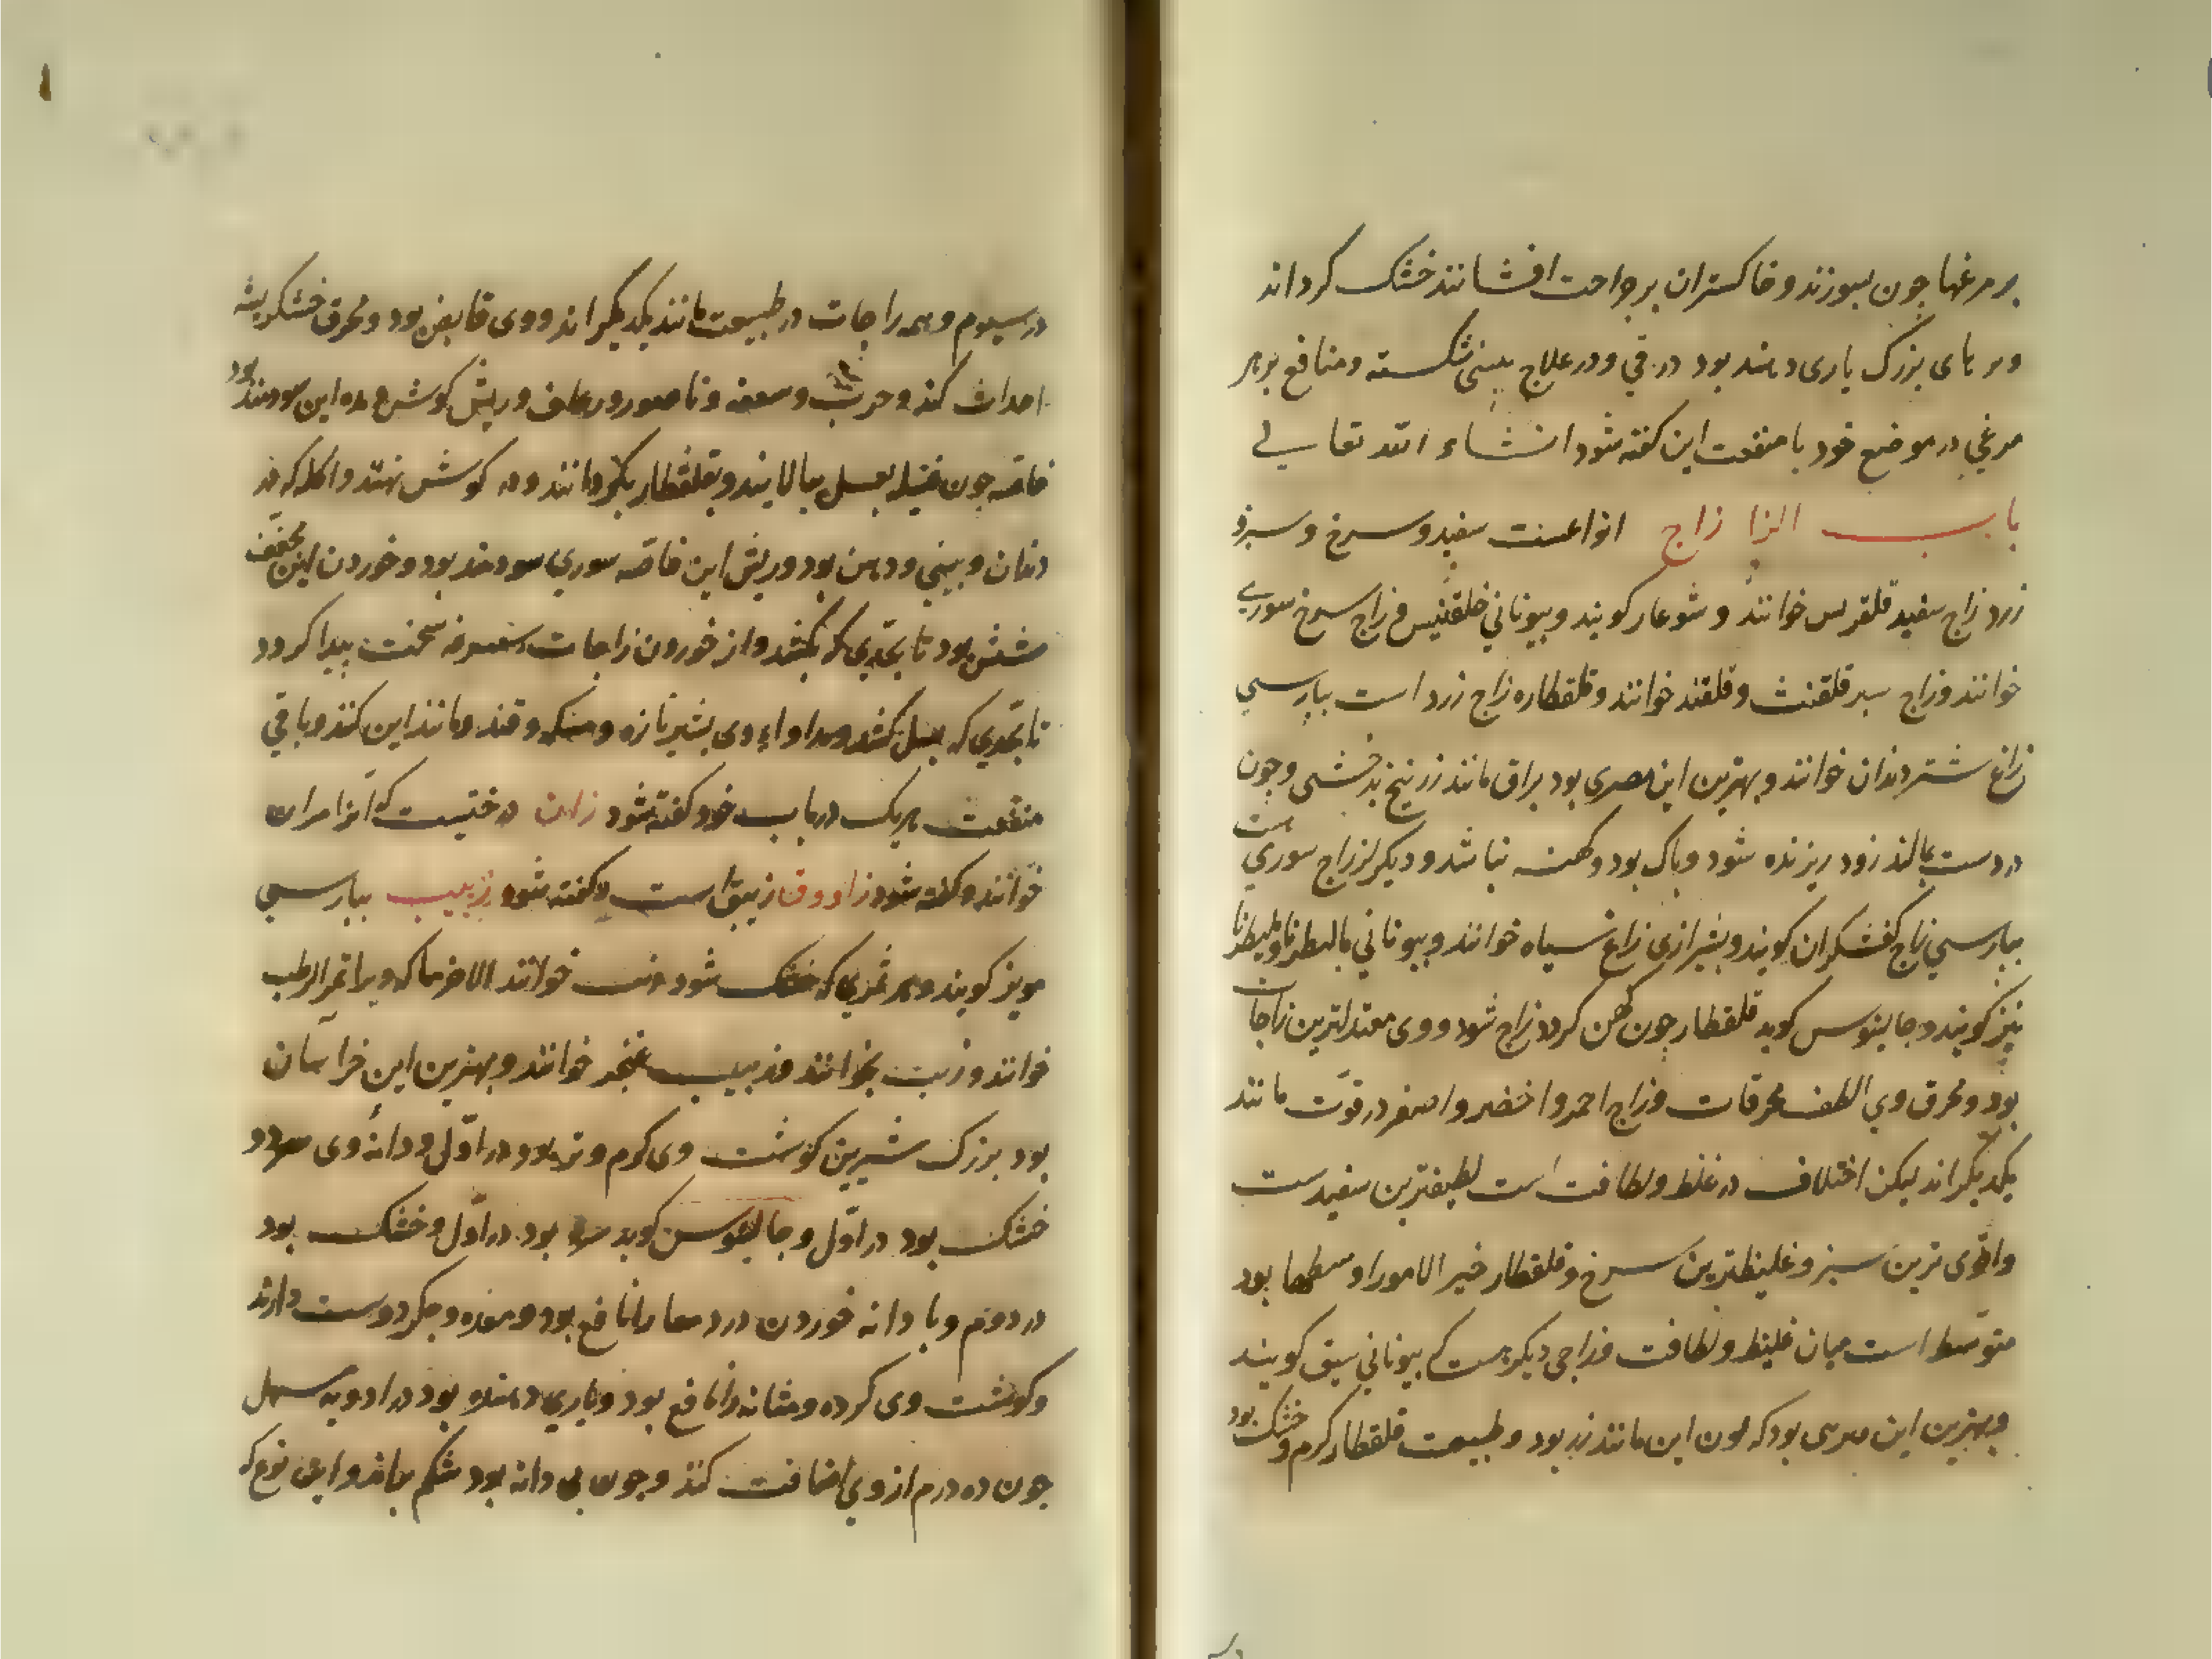 بر مرغها چون بسوزند و خاکستر ان بر جراحت افشانند خشک کرداند
و پر های بزرک یاری دهند بود در قی و در علاج بینی شکسته و منافع پر هر
مرغی در موضع خود با منفعت این کفته شود انشاء الله تعالی
باب الزا زاج انواعست سفید و سرخ و سبز و
زرد زاج سفید قلقدیس خوانند و شوغار کویند و بیونانی خلقیس و زاج سرخ سوری
خوانند و زاج سبز قلقنت و قلقند خوانند و قلقطار زاج زرد است بپارسی
زاغ شتر دندان خوانند و بهترین این مصری بود براق مانند زرنیخ بدخشی و چون
در دست بمالند زود ریزنده شود و پاک بود و کهنه نباشد و دیکر از زاج سوریست
بپارسی زاج کفشکران کویند و بشیرازی زاغ سیاه خوانند و بیونانی مالیطرنا و ملیطرنا
نیز کویند و جالینوس کوید قلقطار چون کهن کردد زاج شود و وی معتدلترین زاجات
بود و محرق وی الطف محرقات و زاج احمر و اخضر و اصفر در قوّت مانند
یکدیکراند لیکن اختلاف در غلظ و لطافت است لطیفترین سفیدست
واقوی ترین سبز و غلیظترین سرخ و قلقطار خیر الامور اوسطها بود
متوسّط است میان غلیظ و لطافت و زاجی دیکر هست که بیونانی سیق کویند
و بهترین این مصری بود که لون این مانند زر بود و طبیعت قلقطار کرم و خشک بود
در سیوم و همه زاجات در طبیعت مانند یکدیکراند و وی قابض بود و محرق خشکریشه
احداث کند و جرب و سعفه و ناصور و رعاف و ریش کوش و مده این سودمند بود
خاصّه چون فتیله بعسل بیالایند و بقلقطار بکردانند و در کوش نهند و اکله که در
دهان و بینی و دهن بود و ریش این خاصّه سوری سودمند بود و خوردن این مجفّف
شش بود تا بحدّی که بکشد و از خوردن زاجات سرفه سخت پیدا کردد
تا بحدّی که بسل کشد و مداواء وی بشیر تازه و مسکه و قند و مانند این کنند و باقی
منفعت هریک در باب خود کفته شود زان درختیست که آنرا مران
خوانند و کفته شود زاووق زیبق است و کفته شود زبیب بپارسی
مویز کویند و هر ثمری که خشک شود زبیب خوانند الا خرما که ویرا تمر الرطب
خوانند و زبیب نخوانند و زبیب عنجد خوانند و بهترین این خراسان
بود بزرک شیرین کوشت وی کرم و تر بود در اوّل و دانه وی سرد و
خشک بود در اوّل و جالینوس کوید سرد بود در اوّل و خشک بود
در دوم و با دانه خوردن درد معا را نافع بود و معده و جکر دوست دارند
و کوشت وی کرده و مثانه را نافع بود و یاری دهنده بود در ادویه مسهل
چون ده درم از وی اضافت کنند و چون بی دانه بود شکم براند و این نوع که